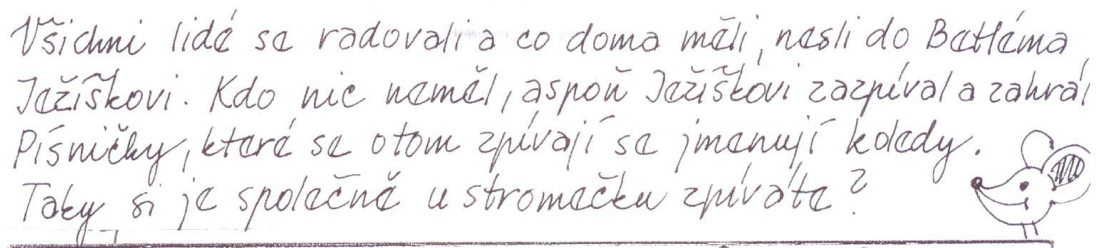 Všichni lidé se radovali a co doma měli, nesli do Betléma
Ježíškovi. Kdo nic neměl, aspoň Ježíškovi zazpíval a zahrál
Písničky, které se o tom zpívají se jmenují koledy.
Taky si je společně u stromečku zpíváte?